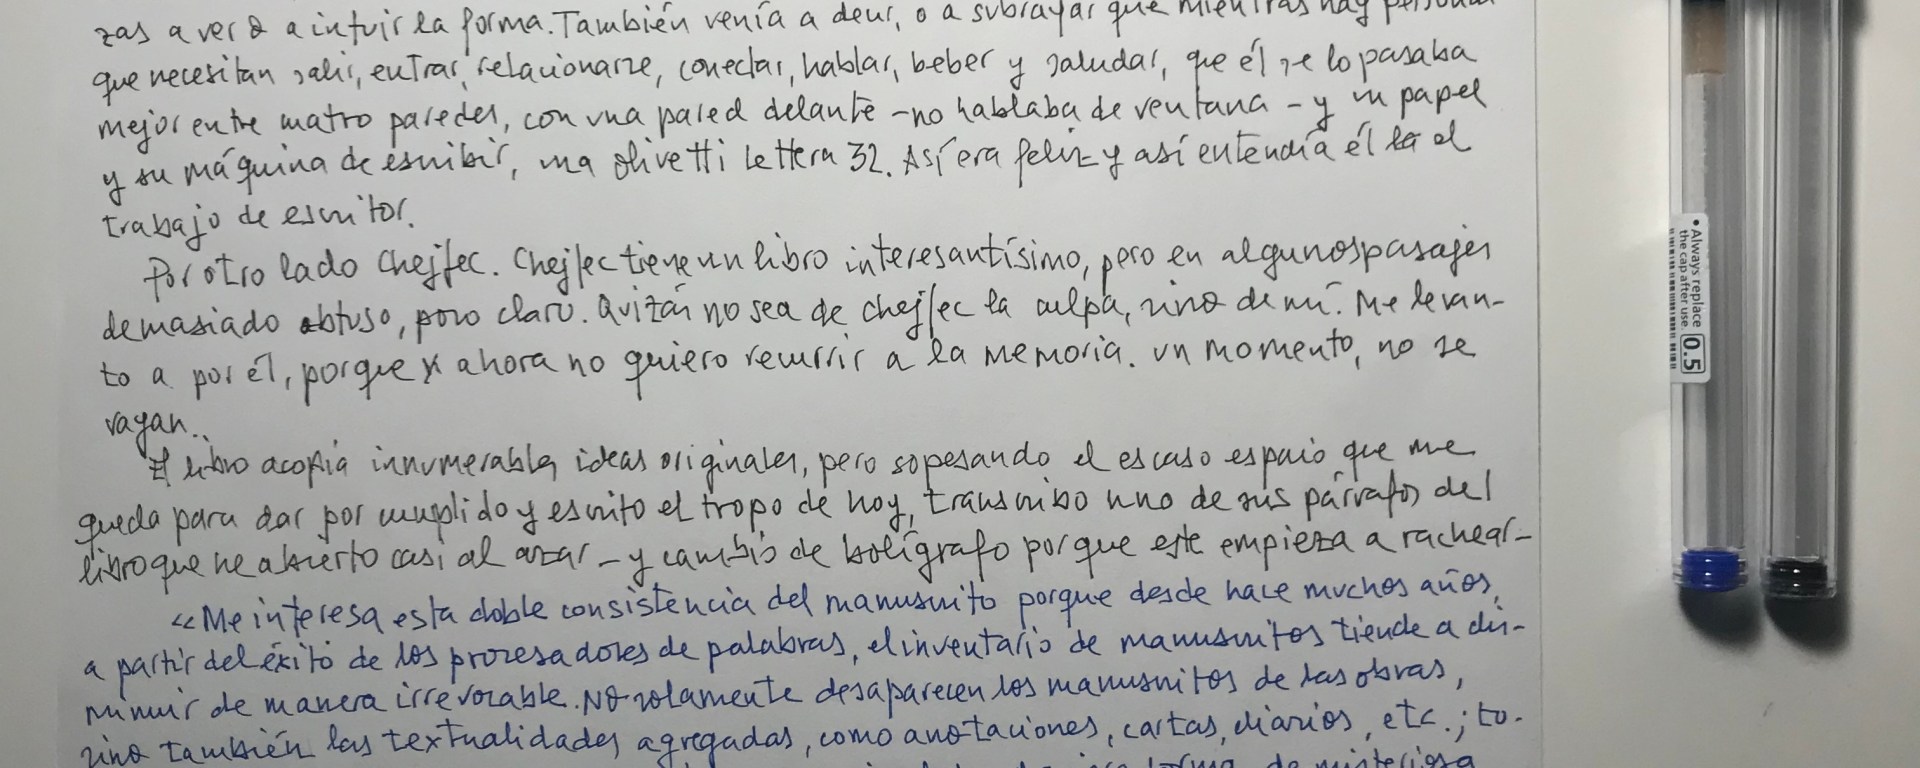 zas a ver o a intuir la forma. También venía a decir, o a subrayar que mientras hay personas
que necesitan salir, entrar, relacionarse, conectar, hablar, beber y saludar, que él se lo pasaba
mejor entre cuatro paredes, con una pared delante -no hablaba de ventana - y un papel
y su máquina de escribir, una Olivetti Lettera 32. Así era feliz y así entendía él la el
trabajo de escritor.
Por otro lado Chejfec. Chejfec tiene un libro interesantísimo, pero en algunos pasajes
demasiado obtuso, poco claro. Quizás no sea de Chejfec la culpa, sino de mí. Me levan-
to a por él, porque ahora no quiero recurrir a la memoria. Un momento, no se
vayan..
El libro acopia innumerables ideas originales, pero sopesando el escaso espacio que me
queda para dar por cumplido y escrito el tropo de hoy, transcribo uno de sus párrafos del
libro que he abierto casi al azar - y cambio de bolígrafo porque este empieza a rachear-
«Me interesa esta doble consistencia del manuscrito porque desde hace muchos años,
a partir del éxito de los procesadores de palabras, el inventario de manuscritos tiende a dis-
minuir de manera irrevocable. No solamente desaparecen los manuscritos de las obras,
sino también las textualidades agregadas, como anotaciones, cartas, diarios, etc.; to-
forma de misteriosa
• Always replace
the cap after use.
0.5